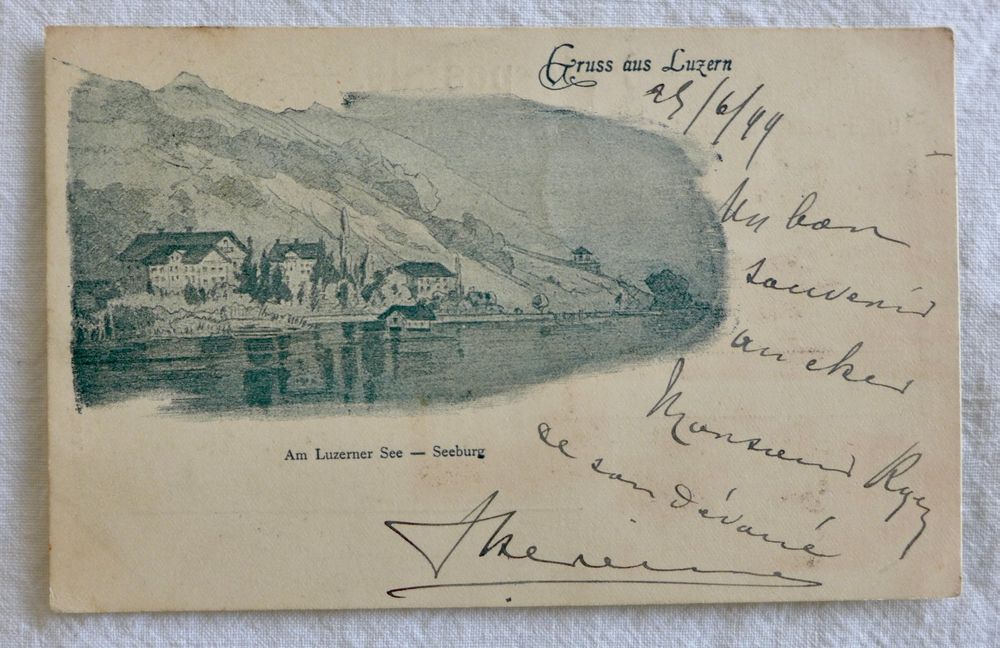 Gruss aus Luzern
25/6/99
Un bon
souvenir
au cher
Monsieur
de son dévoué
Am Luzerner See — Seeburg